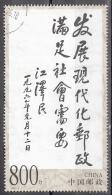 发展現代化郵政
滿足社会需要
江澤民
一九九六年元月十二日
中国邮政
CHINA
800分